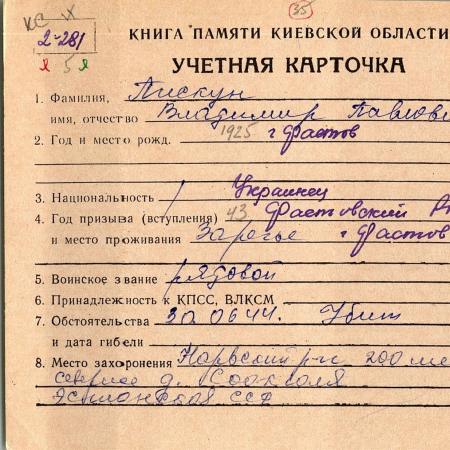 35
КС
2-281
5
КНИГА ПАМЯТИ КИЕВСКОЙ ОБЛАСТИ
УЧЕТНАЯ КАРТОЧКА
1. Фамилия, Пискун
имя, отчество Владимир Павлови
2. Год и место рожд. 1925 г Фастов
3. Национальность Украинец
4. Год призыва (вступления) 43 Фастовский
и место проживания Заречье г Фастов
5. Воинское звание рядовой
6. Принадлежность к КПСС, ВЛКСМ
7. Обстоятельства 30.06.44. Убит
и дата гибели
8. Место захоронения Нарвский р-н 200 ме
севернее д.
Эстонская ССР